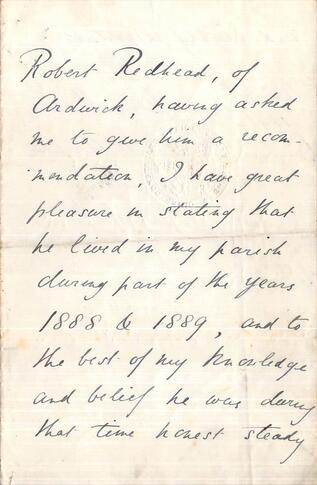 Robert Redhead, of
Ardwick, having asked
me to give him a recom-
mendation, I have great
pleasure in stating that
he lived in my parish
during part of the years
1888 & 1889, and to
the best of my knowledge
and belief he was during
that time honest steady